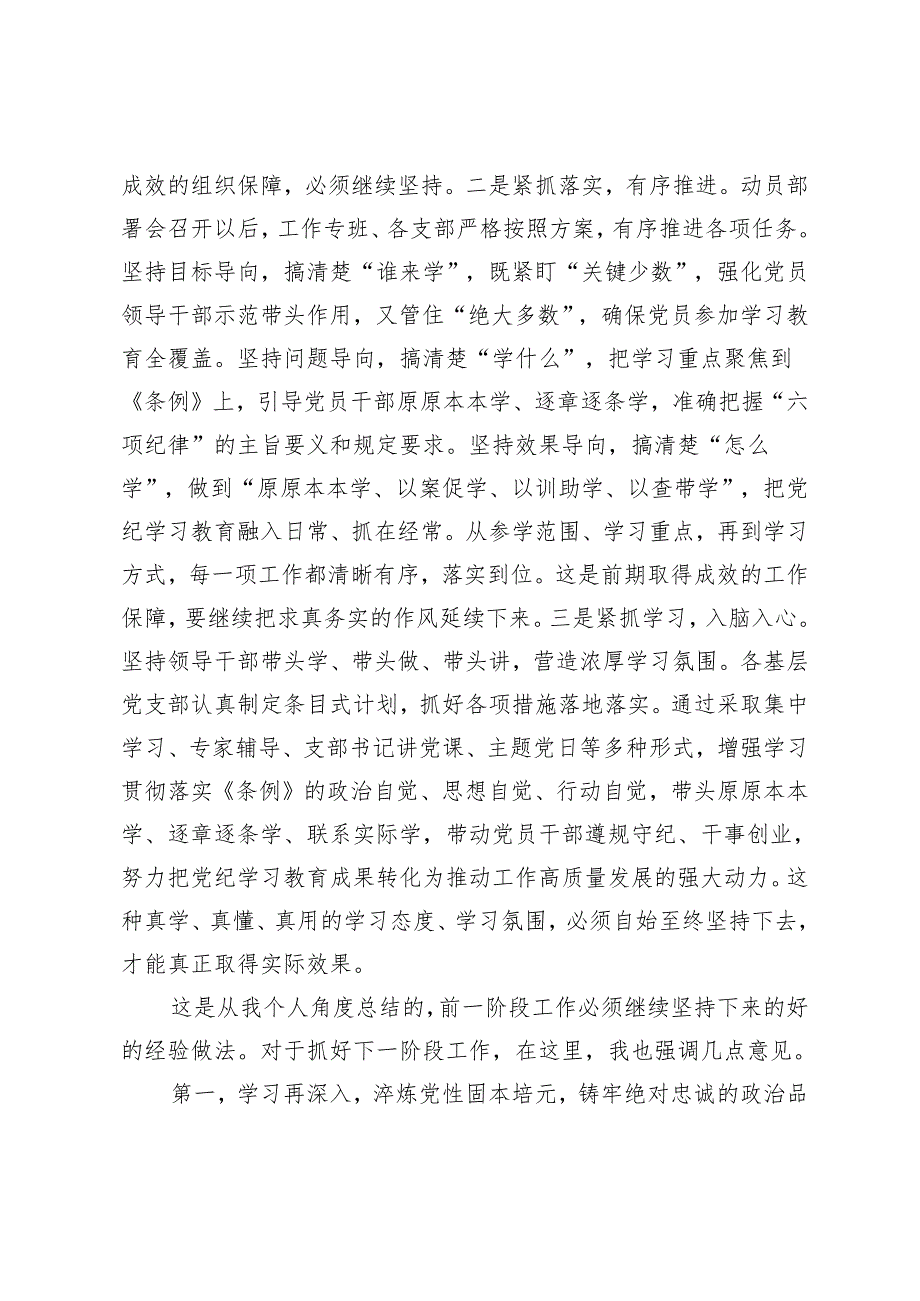 成效的组织保障，必须继续坚持。二是紧抓落实，有序推进。动员部
署会召开以后，工作专班、各支部严格按照方案，有序推进各项任务。
坚持目标导向，搞清楚“谁来学”，既紧盯“关键少数”，强化党员
领导干部示范带头作用，又管住“绝大多数”，确保党员参加学习教
育全覆盖。坚持问题导向，搞清楚“学什么”，把学习重点聚焦到
《条例》上，引导党员干部原原本本学、逐章逐条学，准确把握“六
项纪律”的主旨要义和规定要求。坚持效果导向，搞清楚“怎么
学”，做到“原原本本学、以案促学、以训助学、以查带学”，把党
纪学习教育融入日常、抓在经常。从参学范围、学习重点，再到学习
方式，每一项工作都清晰有序，落实到位。这是前期取得成效的工作
保障，要继续把求真务实的作风延续下来。三是紧抓学习，入脑入心。
坚持领导干部带头学、带头做、带头讲，营造浓厚学习氛围。各基层
党支部认真制定条目式计划，抓好各项措施落地落实。通过采取集中
学习、专家辅导、支部书记讲党课、主题党日等多种形式，增强学习
贯彻落实《条例》的政治自觉、思想自觉、行动自觉，带头原原本本
学、逐章逐条学、联系实际学，带动党员干部遵规守纪、干事创业，
努力把党纪学习教育成果转化为推动工作高质量发展的强大动力。这
种真学、真懂、真用的学习态度、学习氛围，必须自始至终坚持下去，
才能真正取得实际效果。
这是从我个人角度总结的，前一阶段工作必须继续坚持下来的好
的经验做法。对于抓好下一阶段工作，在这里，我也强调几点意见。
第一，学习再深入，淬炼党性固本培元，铸牢绝对忠诚的政治品